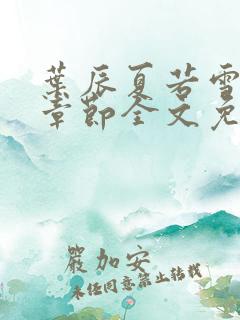 葉辰夏若雪
章節全文免
嚴加安
未经同意禁止转载